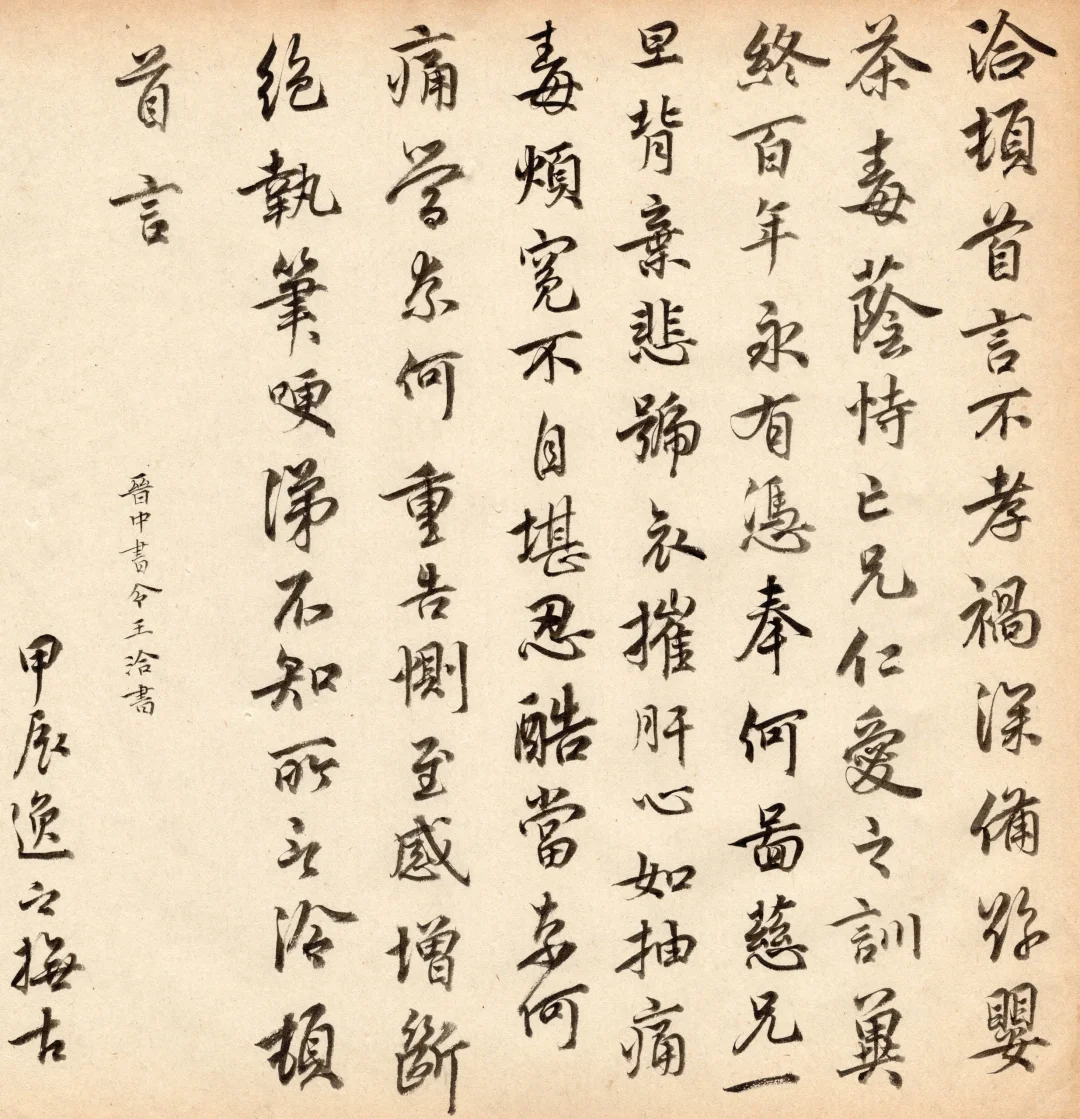 洽頓首言不孝禍深備豫嬰
荼毒蔭恃亡兄仁愛之訓冀
終百年永有憑奉何圖慈兄一
旦背棄悲號哀摧肝心如抽痛
毒煩冤不自堪忍酷當奈何
痛當奈何重告惻至感增斷
絕執筆哽涕不知所言洽頓
首言
晉中書令王洽書
甲辰逸之撫古